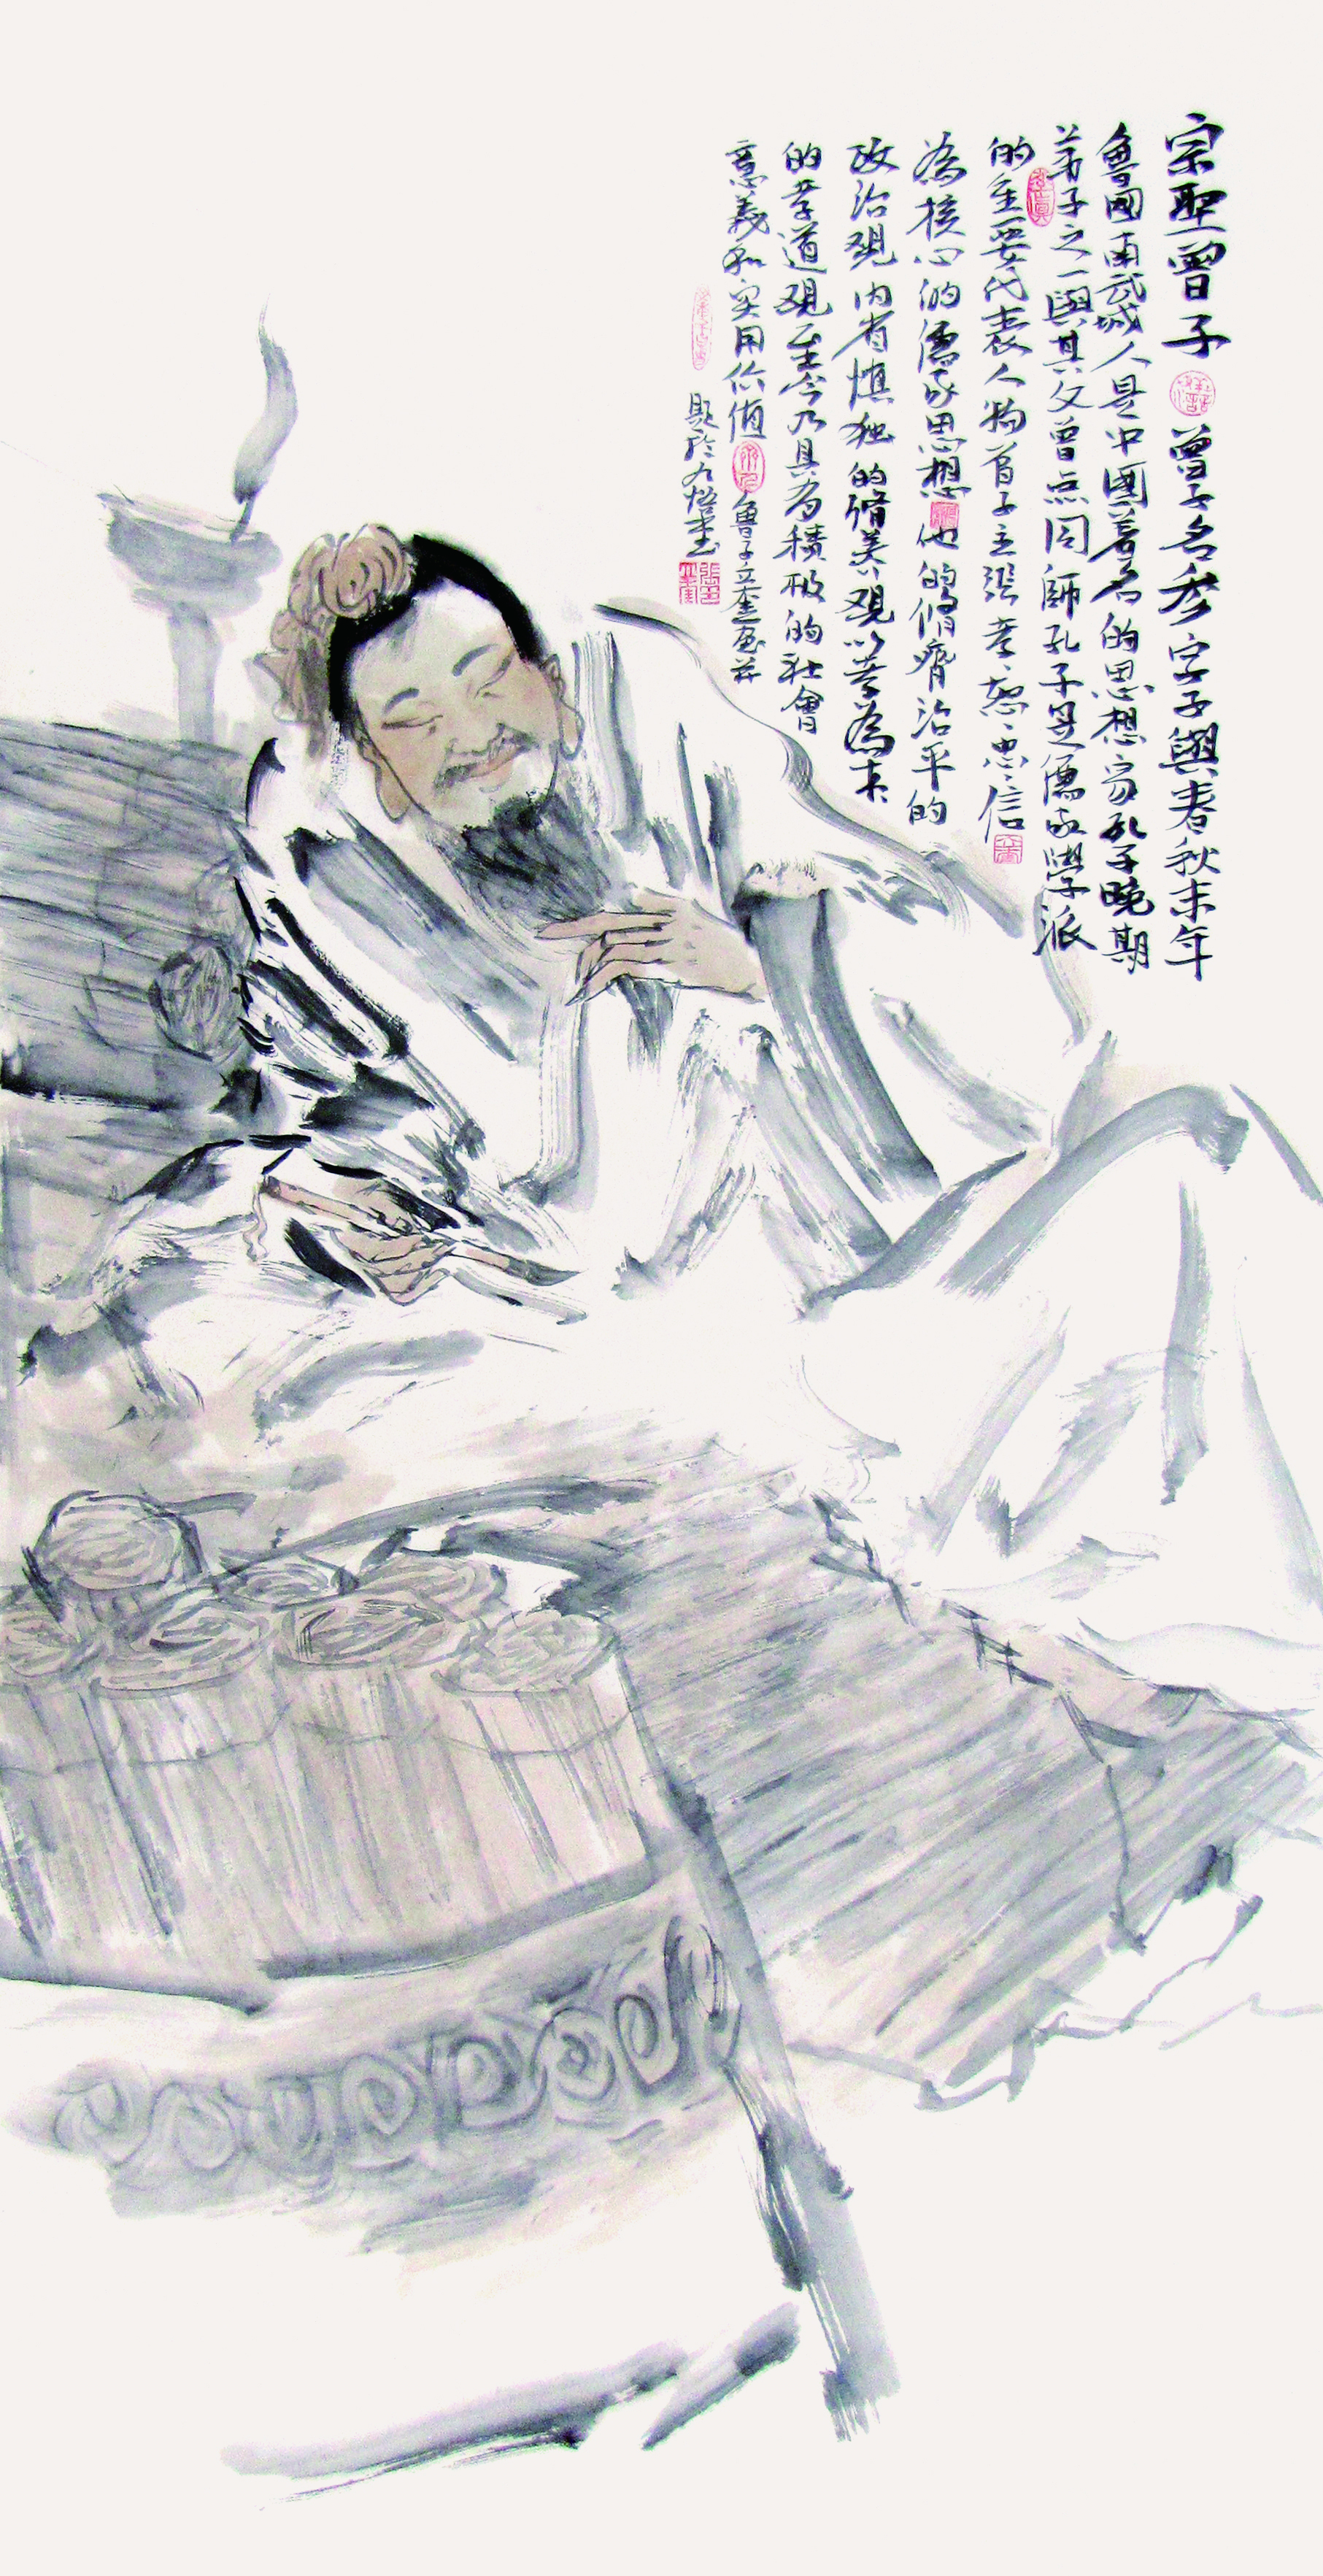 宗聖曾子 曾子名参字子與春秋末年
魯國南武城人是中國著名的思想家孔子晚期
弟子之一與其父曾点同師孔子是儒家學派
的主要代表人物曾子主張孝恕忠信
為核心的儒家思想他的脩齊治平的
政治觀内省慎独的脩養觀以孝為本
的孝道觀至今乃具為積极的社會
意義和实用价值 魯子立奎画并
題於九悟堂